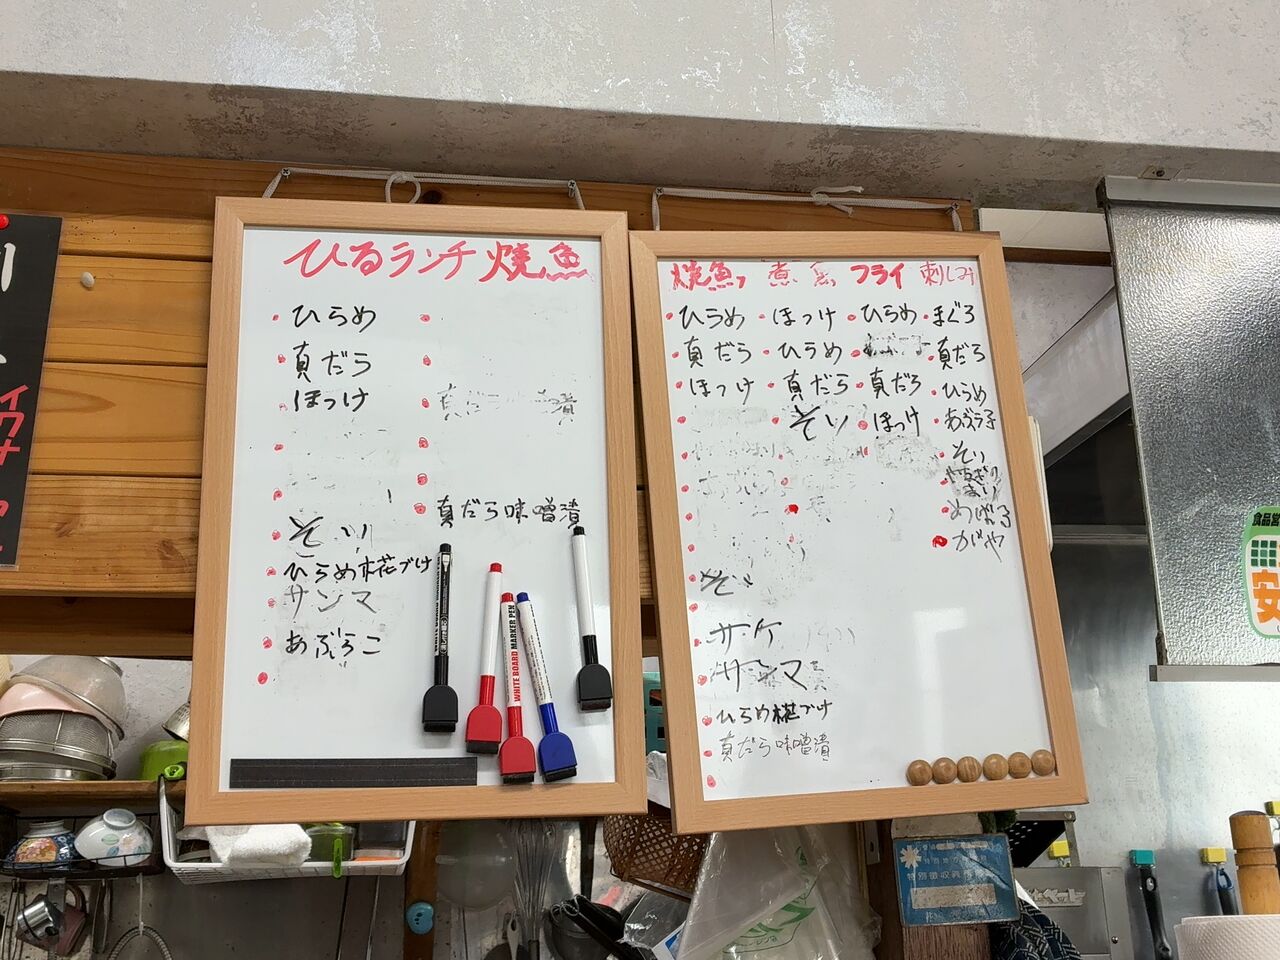 ひるランチ 焼魚
・ひらめ
・真だら
・ほっけ
・そい
・ひらめ糀づけ
・サンマ
・あぶらこ
・真だら味噌漬
WHITE BOARD MARKER PEN
焼魚 煮魚 フライ 刺しみ
・ひらめ ・ほっけ ・ひらめ ・まぐろ
・真だら ・ひらめ ・真だら
・ほっけ ・真だら ・真だら ・ひらめ
・そい ・ほっけ ・あぶラ子
・そい
・めばる
・がや
・そい
・サケ
・サンマ
・ひらめ糀づけ
・真だら味噌漬
安